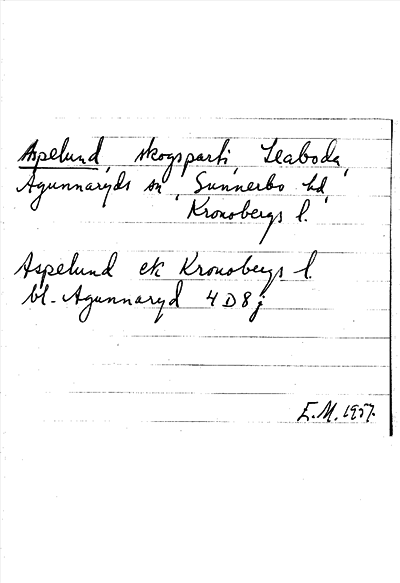 Aspelund, skogsparti, Leaboda,
Agunnaryds sn, Sunnerbo hd,
Kronobergs l.
Aspelund ek Kronobergs l.
bl. Agunnaryd 4D8j
E.M. 1957.